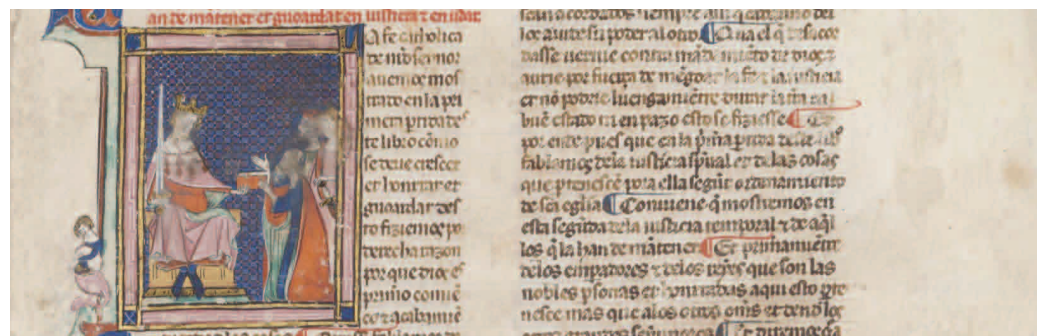 an de mãtener et guardar en iusticia τ en
A fe catholica
de nr̃o sennor
auemos mos
trado en la pri
mera ꝑtida des
te libro cõmo
se deue creser
et honrrar et
guardar des
to fiziemos por
derecha razon
por que dios es
primo comiē
ayude su poder al otro ¶ Ca el q̃ desacor
dasse uernie contra mãdamiẽto de dios τ
aurie por fuerça de mẽgoar la fe τ la iusticia
et nõ podrie luengamiẽtre durar la tr̃ra en
buẽ estado ni en pazo esto se fiziesse ¶ Et
por ende pues que en la pr̃ma ꝑtida deste libro
fablamos de la iusticia sp̃ual et de las cosas
que ꝑtenescẽ pora ella segũt ordenamiento
de sc̃a eglia ¶ Conuiene q̃ mostremos en
esta segũda de la iusticia temporal τ de aq̃l
los q̃ la han de mãtener ¶ Et primamiẽtr̃
delos emꝑadores τ delos reyes que son las
nobles ꝑsonas et honrradas a qui esto ꝑte
nesce mas que alos otros om̃s et dend los